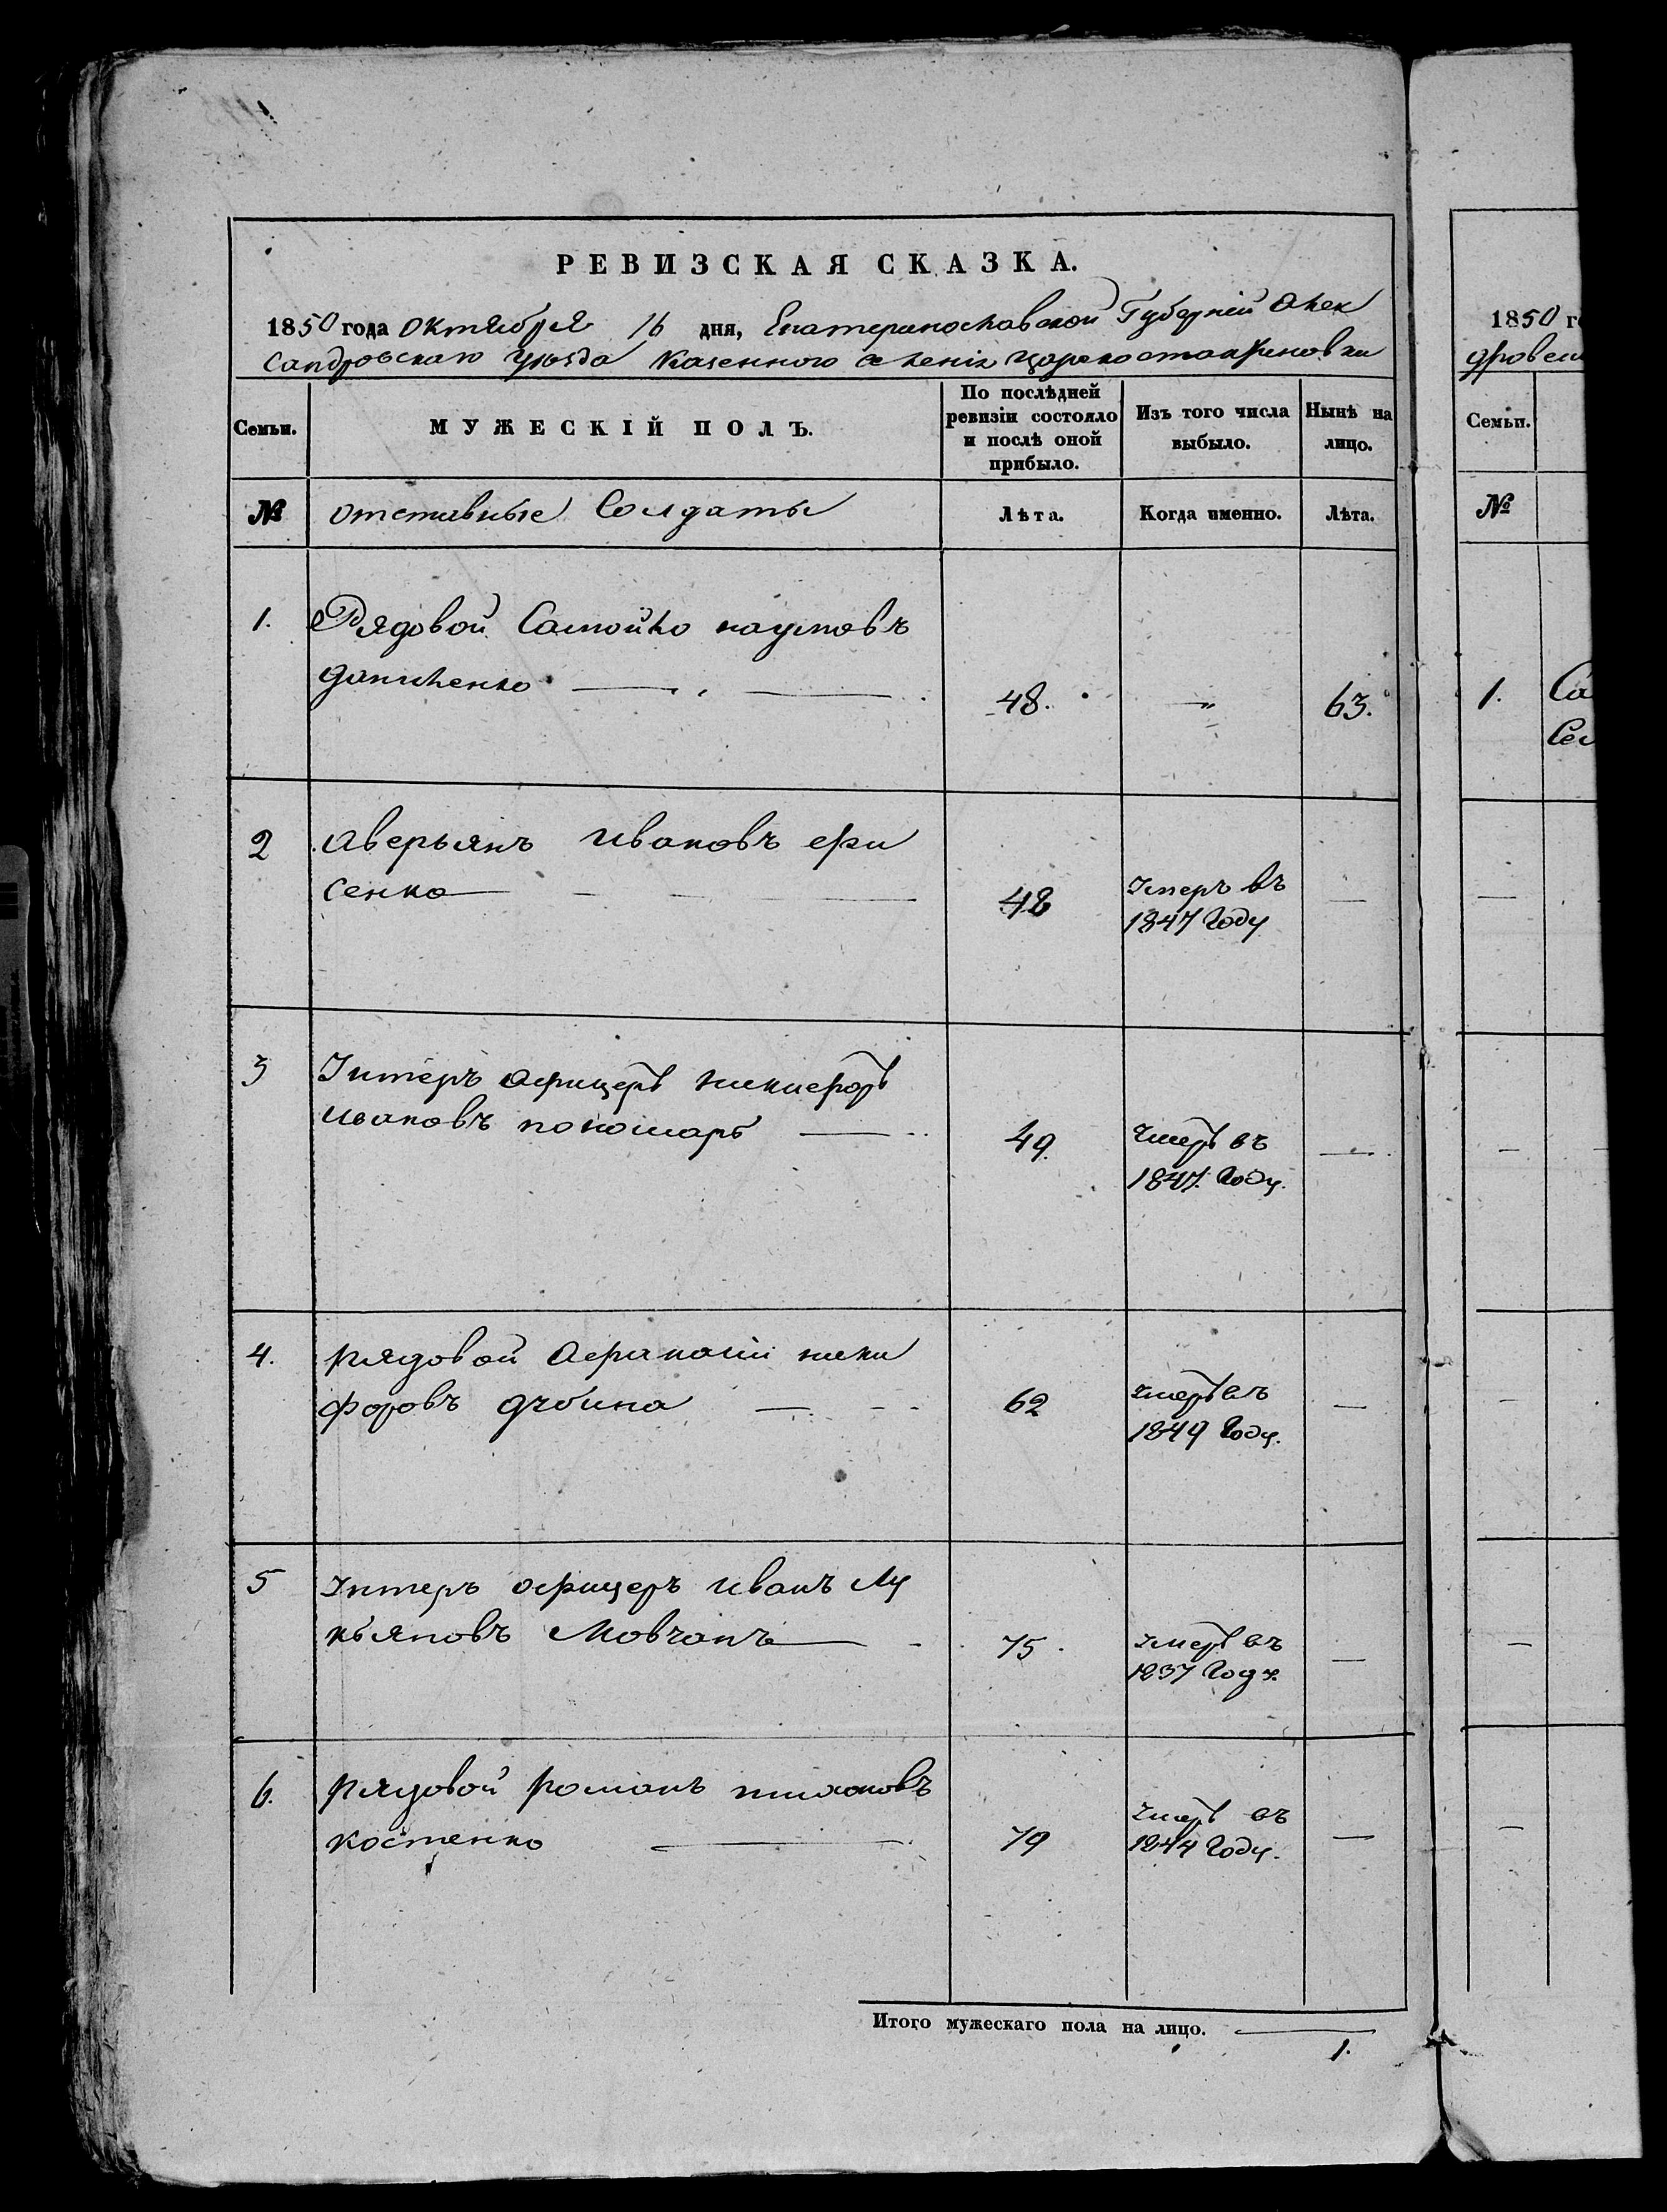 РЕВИЗСКАЯ СКАЗКА.
1850 года Октября 16 дня, Екатеринославской Губерніи Алек
сандровскаго Уѣзда Казенного Селенія Царекостантиновки
Семьи.
МУЖЕСКІЙ ПОЛЪ.
По послѣдней
ревизіи состояло
и послѣ оной
прибыло.
Изъ того числа
выбыло.
Нынѣ на
лицо.
№
отставные Солдаты
Лѣта.
Когда именно.
Лѣта.
1.
Рядовой Самойло наумовъ
даниленко
48.
63.
2
аверьянъ Ивановъ
сенко
48
Умеръ въ
1847 Году
3
Унтеръ офицеръ никифоръ
ивановъ пономарь
49.
Умеръ въ
1847. Году.
4.
рядовой Афанасій ники
форовъ дубина
62
умеръ въ
1849 Году.
5
унтеръ офицеръ иванъ Лу
кьяновъ Мовчанъ
75.
умеръ въ
1837 Году.
6.
рядовой романъ тихоновъ
костенко
79
умеръ въ
1844 Году.
Итого мужескаго пола на лицо.
1.
1850 го
дровск
Семьи.
№
1.
Са
Се